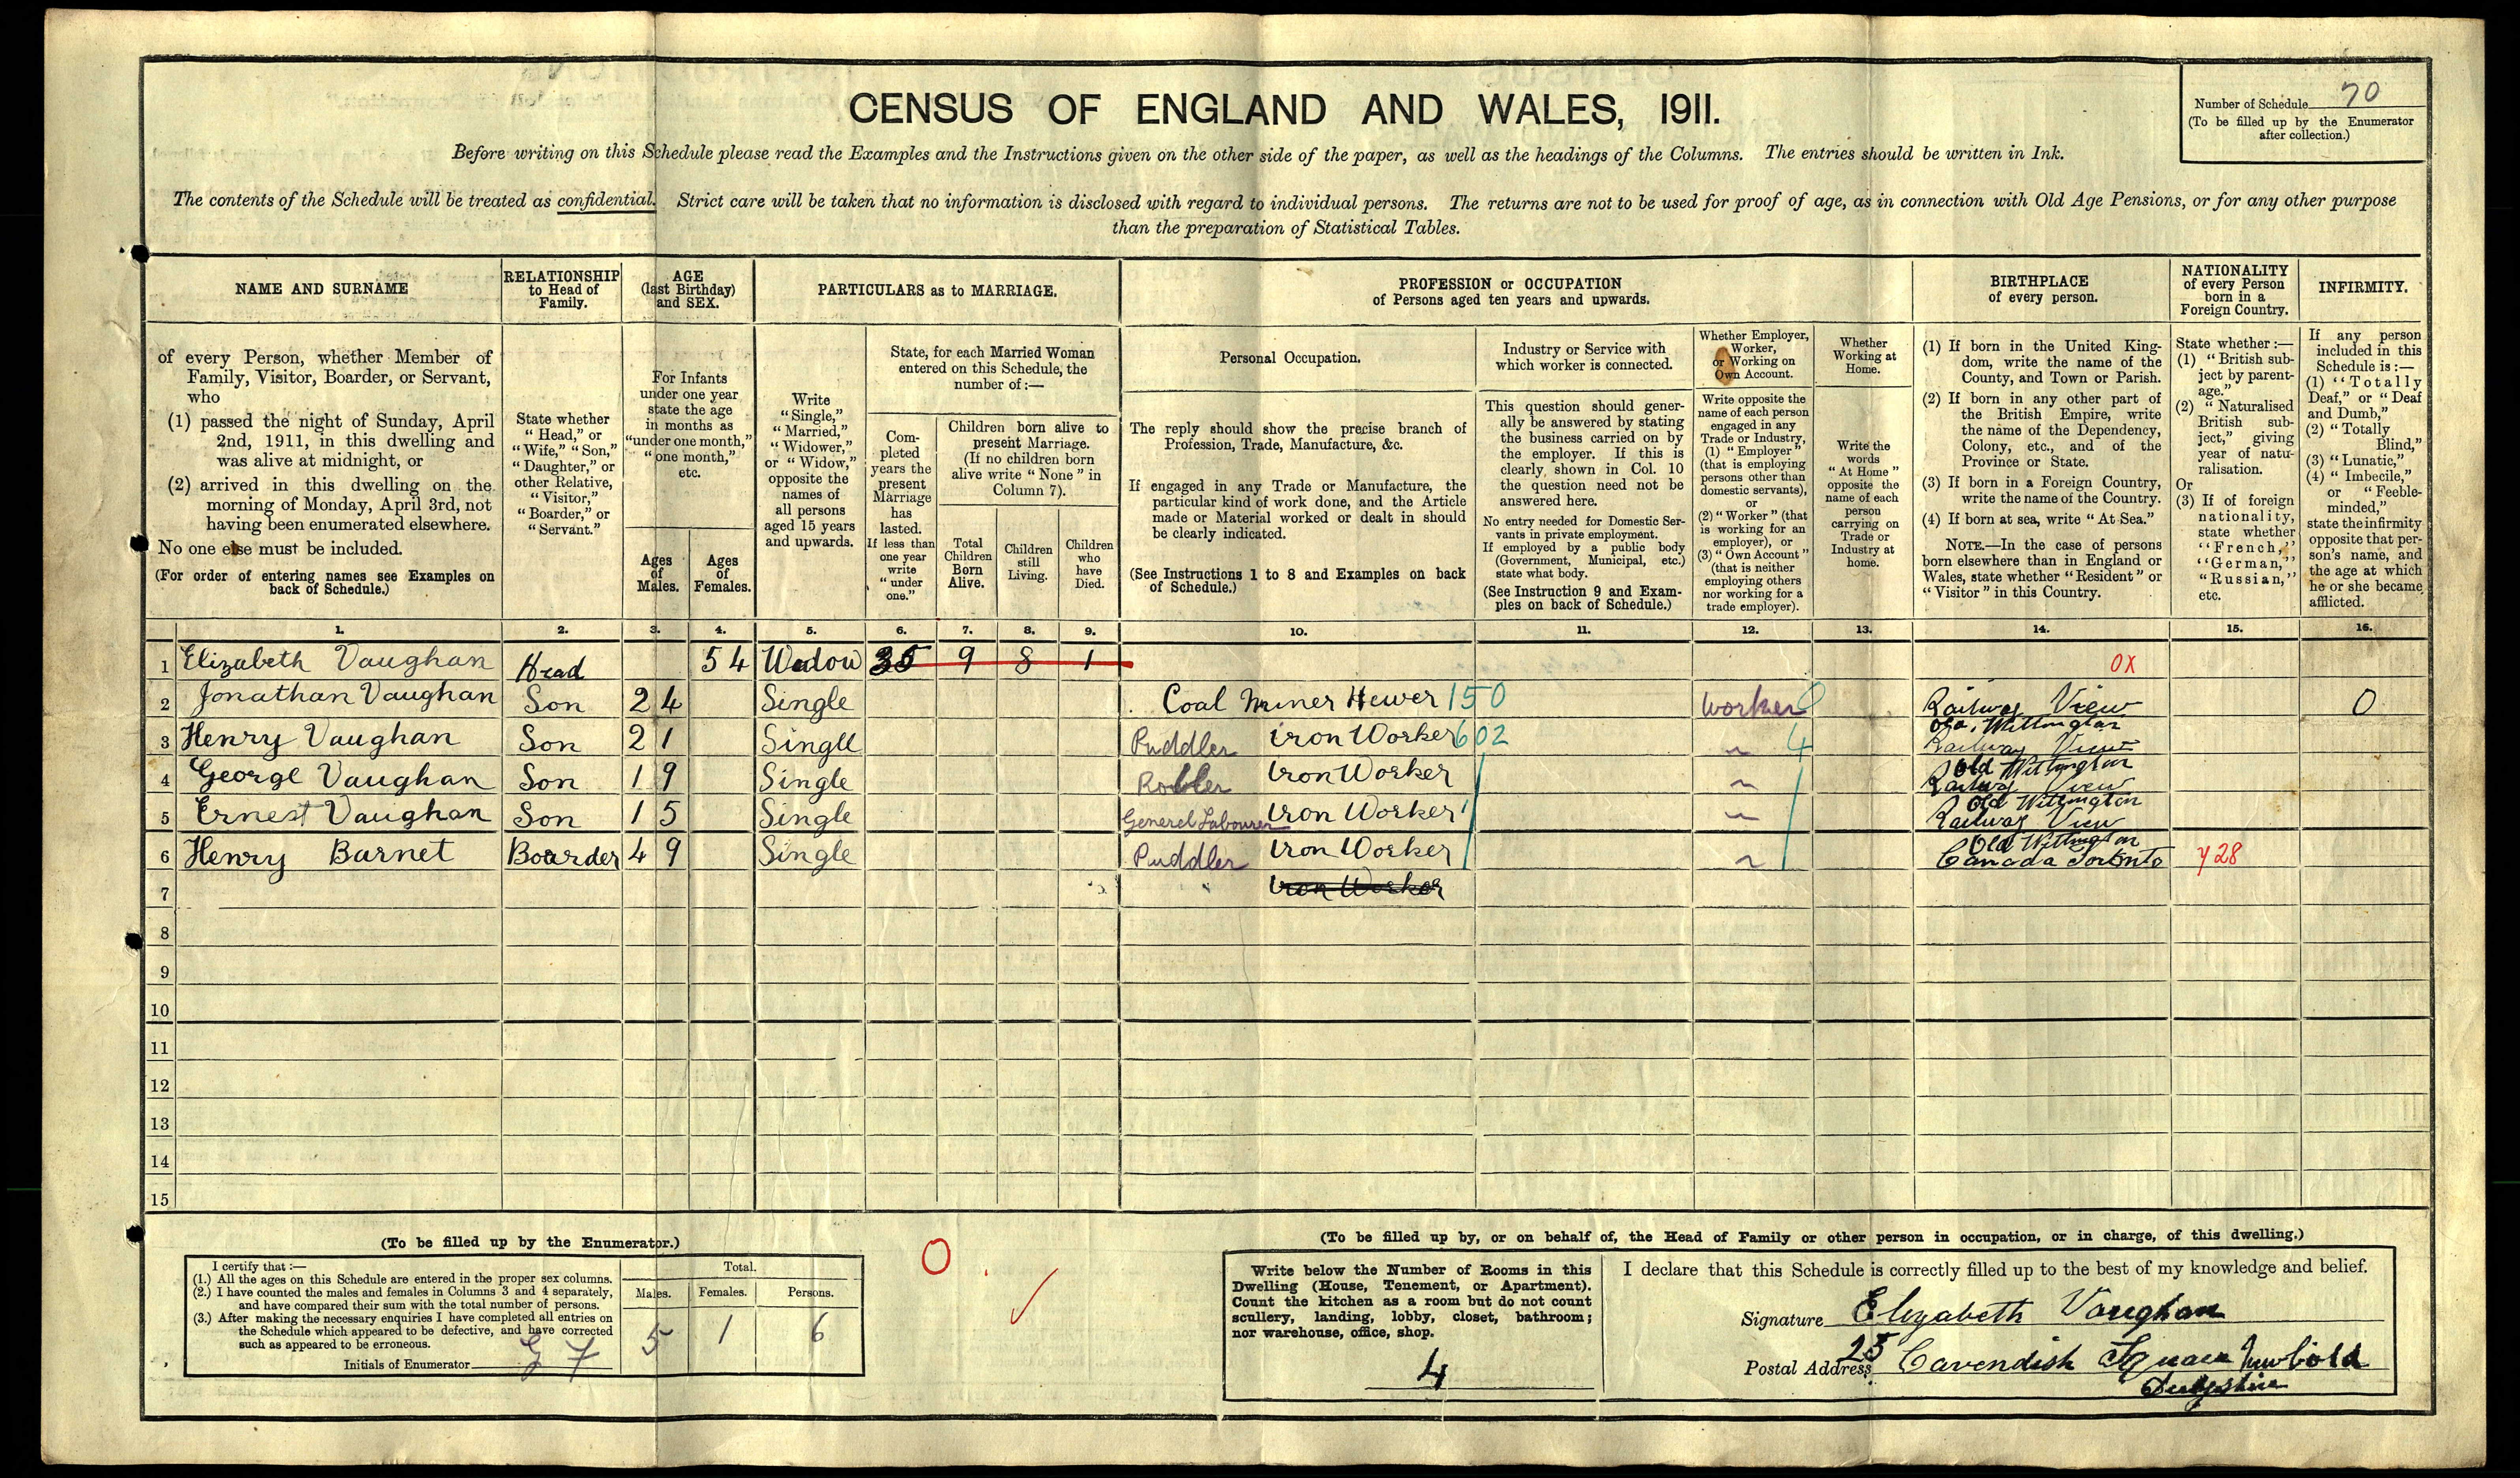 CENSUS OF ENGLAND AND WALES, 1911.
Number of Schedule 70
(To be filled up by the Enumerator
after collection.)
Before writing on this Schedule please read the Examples and the Instructions given on the other side of the paper, as well as the headings of the Columns. The entries should be written in Ink.
The contents of the Schedule will be treated as confidential. Strict care will be taken that no information is disclosed with regard to individual persons. The returns are not to be used for proof of age, as in connection with Old Age Pensions, or for any other purpose
than the preparation of Statistical Tables.
NAME AND SURNAME
of every Person, whether Member of
Family, Visitor, Boarder, or Servant,
who
(1) passed the night of Sunday, April
2nd, 1911, in this dwelling and
was alive at midnight, or
(2) arrived in this dwelling on the
morning of Monday, April 3rd, not
having been enumerated elsewhere.
No one else must be included.
(For order of entering names see Examples on
back of Schedule.)
RELATIONSHIP
to Head of
Family.
State whether
"Head," or
"Wife," "Son,"
"Daughter," or
other Relative,
"Visitor,"
"Boarder," or
"Servant."
AGE
(last Birthday)
and SEX.
For Infants
under one year
state the age
in months as
"under one month,"
"one month,"
etc.
Ages
of
Males.
Ages
of
Females.
PARTICULARS as to MARRIAGE.
Write
"Single,"
"Married,"
"Widower,"
or "Widow,"
opposite the
names of
all persons
aged 15 years
and upwards.
State, for each Married Woman
entered on this Schedule, the
number of:—
Com-
pleted
years the
present
Marriage
has
lasted.
If less than
one year
write
"under
one."
Children born alive to
present Marriage.
(If no children born
alive write "None" in
Column 7).
Total
Children
Born
Alive.
Children
still
Living.
Children
who
have
Died.
PROFESSION or OCCUPATION
of Persons aged ten years and upwards.
Personal Occupation.
The reply should show the precise branch of
Profession, Trade, Manufacture, &c.
If engaged in any Trade or Manufacture, the
particular kind of work done, and the Article
made or Material worked or dealt in should
be clearly indicated.
(See Instructions 1 to 8 and Examples on back
of Schedule.)
Industry or Service with
which worker is connected.
This question should gener-
ally be answered by stating
the business carried on by
the employer. If this is
clearly shown in Col. 10
the question need not be
answered here.
No entry needed for Domestic Ser-
vants in private employment.
If employed by a public body
(Government, Municipal, etc.)
state what body.
(See Instruction 9 and Exam-
ples on back of Schedule.)
Whether Employer,
Worker,
or Working on
Own Account.
Write opposite the
name of each person
engaged in any
Trade or Industry,
(1) "Employer"
(that is employing
persons other than
domestic servants),
or
(2) "Worker" (that
is working for an
employer), or
(3) "Own Account"
(that is neither
employing others
nor working for a
trade employer).
Whether
Working at
Home.
Write the
words
"At Home"
opposite the
name of each
person
carrying on
Trade or
Industry at
home.
BIRTHPLACE
of every person.
(1) If born in the United King-
dom, write the name of the
County, and Town or Parish.
(2) If born in any other part of
the British Empire, write
the name of the Dependency,
Colony, etc., and of the
Province or State.
(3) If born in a Foreign Country,
write the name of the Country.
(4) If born at sea, write "At Sea."
NOTE.—In the case of persons
born elsewhere than in England or
Wales, state whether "Resident" or
"Visitor" in this Country.
NATIONALITY
of every Person
born in a
Foreign Country.
State whether:—
(1) "British sub-
ject by parent-
age."
(2) "Naturalised
British sub-
ject," giving
year of natu-
ralisation.
Or
(3) If of foreign
nationality,
state whether
"French,"
"German,"
"Russian,"
etc.
INFIRMITY.
If any person
included in this
Schedule is:—
(1) "Totally
Deaf," or "Deaf
and Dumb,"
(2) "Totally
Blind,"
(3) "Lunatic,"
(4) "Imbecile,"
or "Feeble-
minded,"
state the infirmity
opposite that per-
son's name, and
the age at which
he or she became
afflicted.
1. 2. 3. 4. 5. 6. 7. 8. 9. 10. 11. 12. 13. 14. 15. 16.
1 Elizabeth Vaughan Head 54 Wedow 35 9 8 1 OX
2 Jonathan Vaughan Son 24 Single Coal Miner Hewer 150 Worker 0 Railway View 0
Old Wittington
3 Henry Vaughan Son 21 Single Puddler Iron Worker 602 4 Railway View
Old Wittington
4 George Vaughan Son 19 Single Iron Worker Railway View
Old Wittington
5 Ernest Vaughan Son 15 Single General Labourer Iron Worker Railway View
Old Wittington
6 Henry Barnet Boarder 49 Single Puddler Iron Worker Canada Toronto 428
7 Iron Worker
8
9
10
11
12
13
14
15
(To be filled up by the Enumerator.)
I certify that:—
(1.) All the ages on this Schedule are entered in the proper sex columns.
(2.) I have counted the males and females in Columns 3 and 4 separately,
and have compared their sum with the total number of persons.
(3.) After making the necessary enquiries I have completed all entries on
the Schedule which appeared to be defective, and have corrected
such as appeared to be erroneous.
Initials of Enumerator
Total.
Males. Females. Persons.
5 1 6
0
(To be filled up by, or on behalf of, the Head of Family or other person in occupation, or in charge, of this dwelling.)
Write below the Number of Rooms in this
Dwelling (House, Tenement, or Apartment).
Count the kitchen as a room but do not count
scullery, landing, lobby, closet, bathroom;
nor warehouse, office, shop.
4
I declare that this Schedule is correctly filled up to the best of my knowledge and belief.
Signature Elizabeth Vaughan
Postal Address 25 Cavendish Square Newbold
Derbyshire